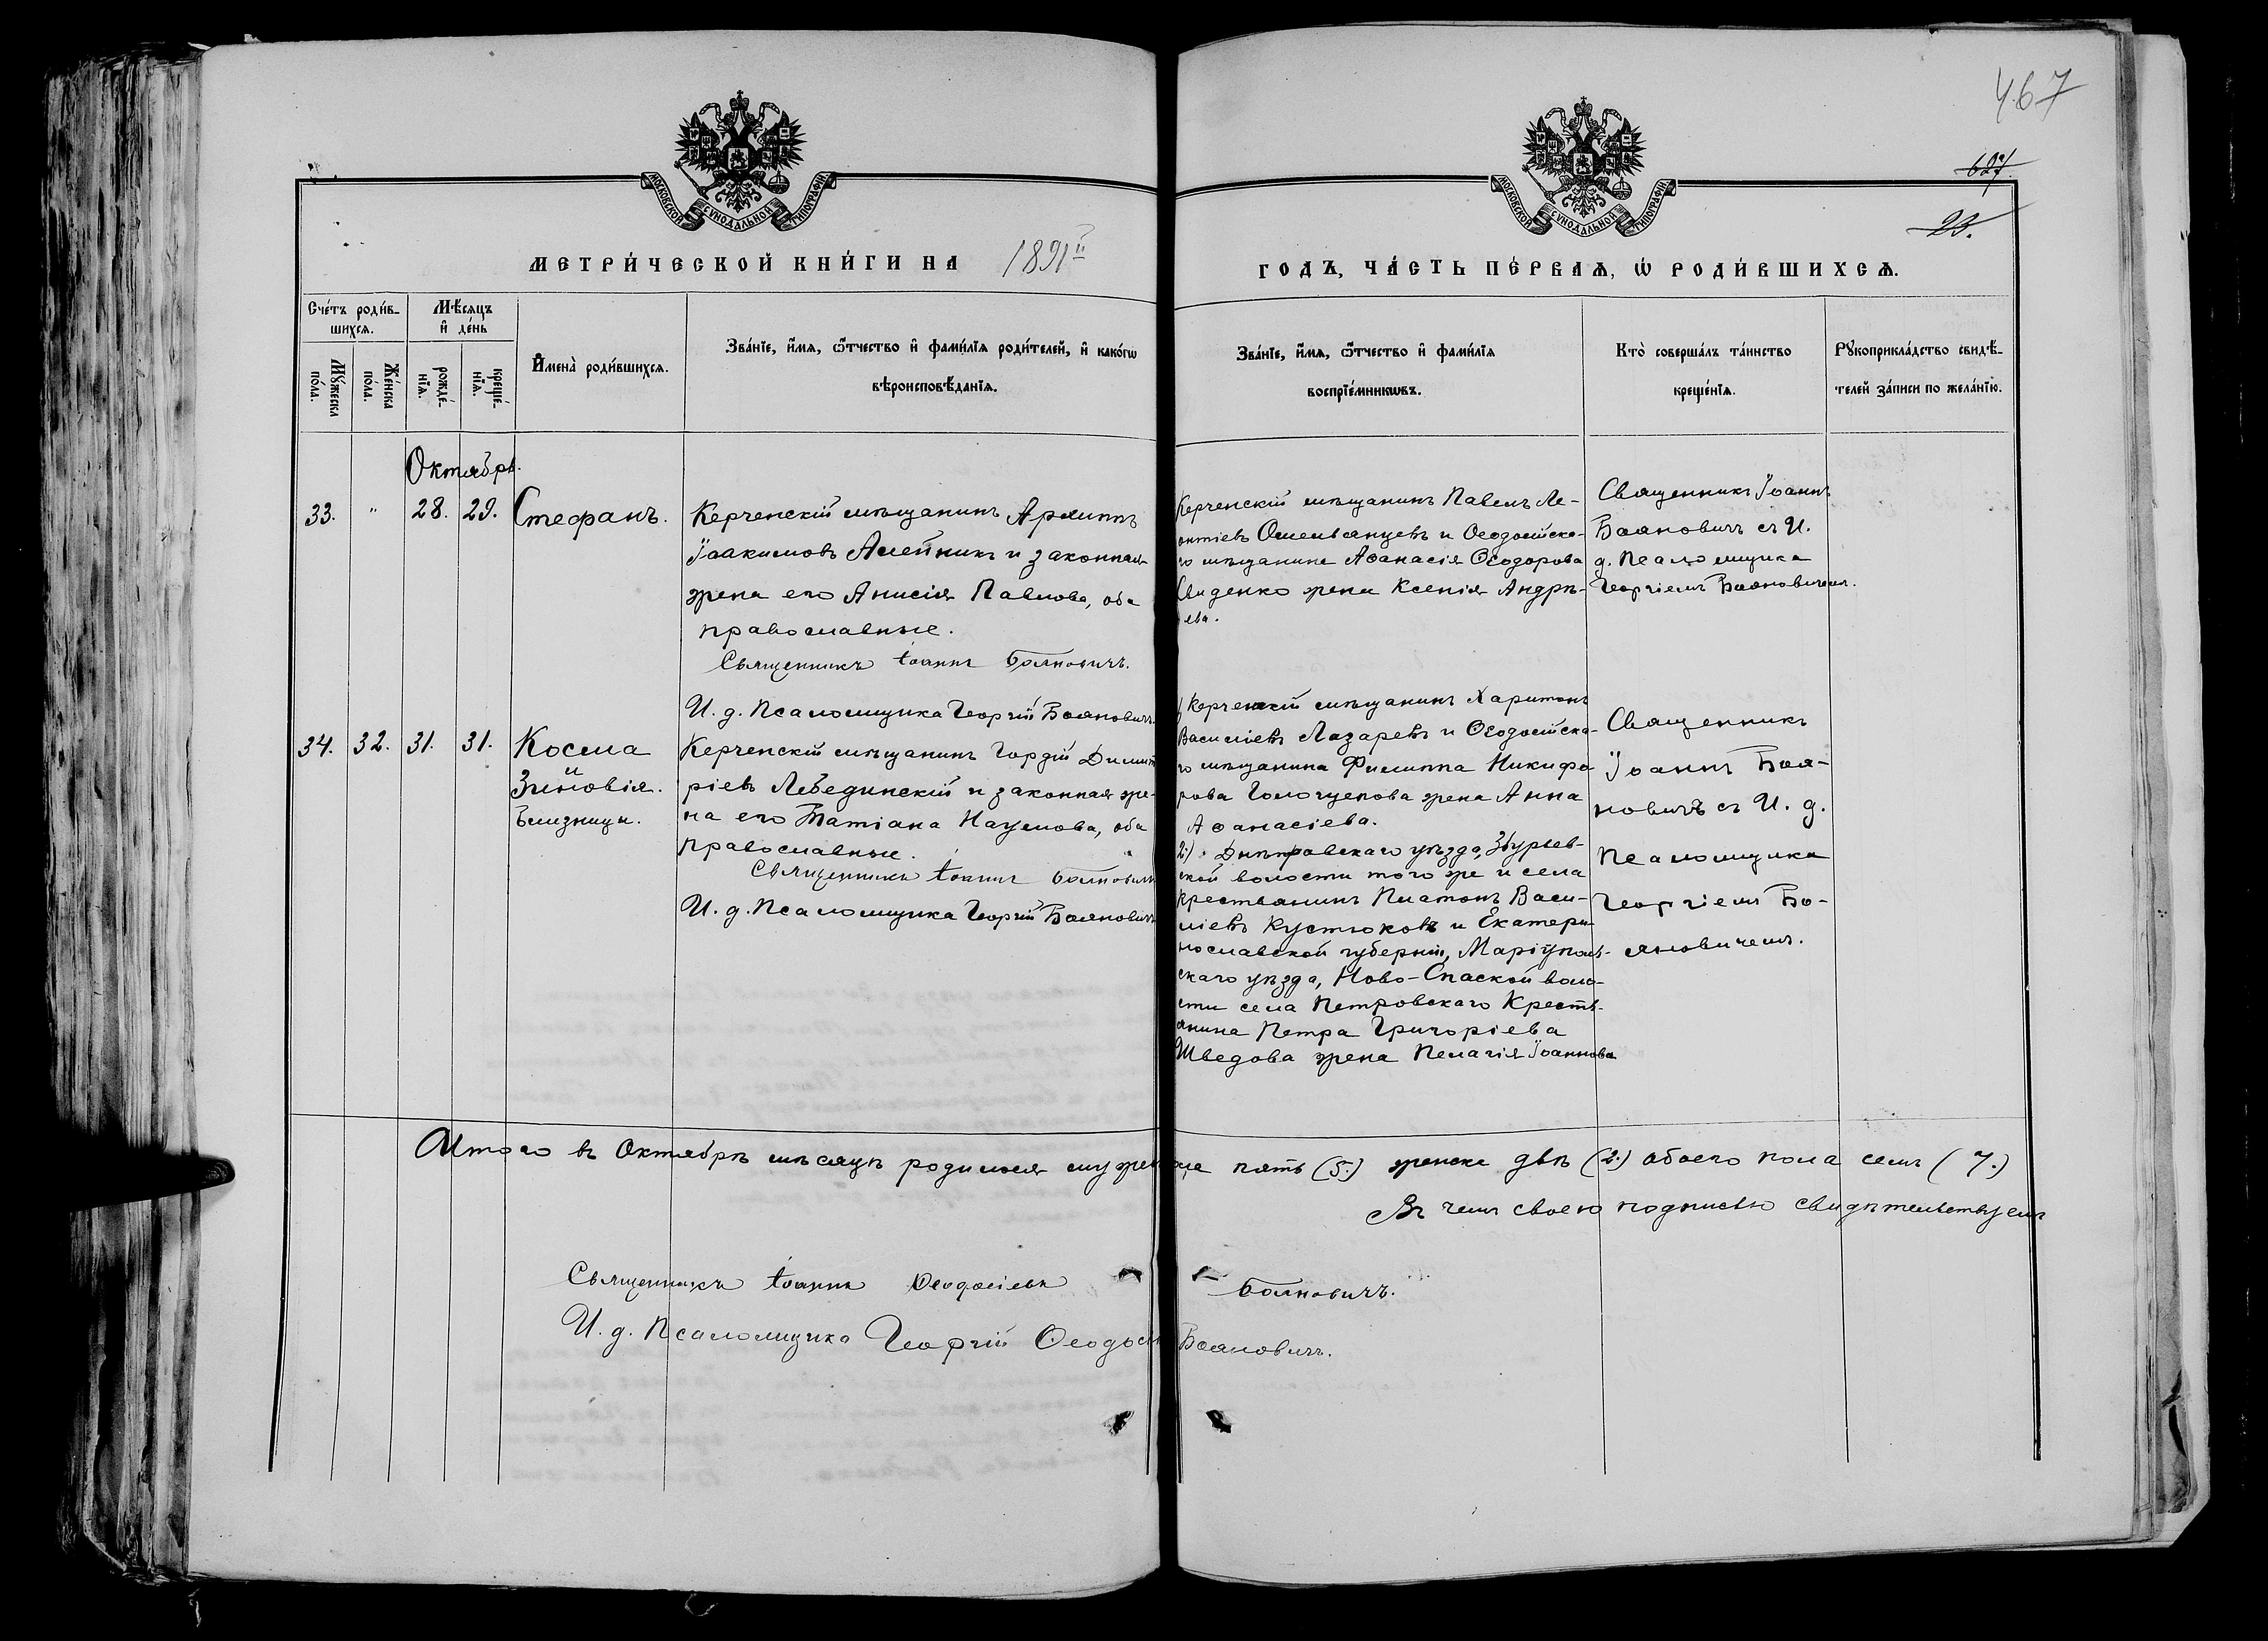 467
627
23.
МОСКОВСКОЙ СѴНОДАЛЬНОЙ ТИПОГРАФІИ
МОСКОВСКОЙ СѴНОДАЛЬНОЙ ТИПОГРАФІИ
МЕТРИ́ЧЕСКОЙ КНИ́ГИ НА 1891й
ГОДЪ, ЧА́СТЬ ПЕ́РВАѦ, Ѡ҆ РОДИ́ВШИХСѦ.
Сче́тъ роди́в-
шихсѧ.
Мꙋ́жеска
по́ла.
Же́нска
по́ла.
Мѣ́сѧцъ
и҆ де́нь
рожде́-
нїѧ.
креще́-
нїѧ.
И҆мена̀ роди́вшихсѧ.
Зва́нїе, и҆́мѧ, ѻ҆́тчество и҆ фами́лїѧ роди́телей, и҆ како́гѡ
вѣроисповѣ́данїѧ.
Зва́нїе, и҆́мѧ, ѻ҆́тчество и҆ фами́лїѧ
воспрїе́мникѡвъ.
Кто̀ соверша́лъ та́инство
креще́нїѧ.
Рꙋкоприкла́дство свидѣ́-
телей за́писи по жела́нїю.
Октябрь.
33. " 28. 29. Стефанъ.
Керченскій мѣщанинъ Архиппъ
Іоакимовъ Алейникъ и законная
жена его Анисія Павлова, оба
православные.
Священникъ Іоаннъ Бояновичъ.
И. д. Псаломщика Георгій Бояновичъ
Керченскій мѣщанинъ Павелъ Ле-
онтіевъ Омельянцевъ и Ѳеодосійска-
го мѣщанина Аѳанасія Ѳеодорова
Свиденко жена Ксенія Андрѣ-
ева.
Священникъ Іоаннъ
Бояновичъ съ И.
д. Псаломщика
Георгіемъ Бояновичемъ.
34. 32. 31. 31. Косма
Зиновія.
Близнецы.
Керченскій мѣщанинъ Гордій Димит
ріевъ Лебединскій и законная же-
на его Татіана Наумова, оба
православные.
Священникъ Іоаннъ Бояновичъ
И. д. Псаломщика Георгій Бояновичъ
Керченскій мѣщанинъ Харитонъ
Василіевъ Лазаревъ и Ѳеодосійска-
го мѣщанина Филиппа Никифо
рова Голощепова жена Анна
Аѳанасіева.
2) Днѣпровскаго уѣзда, Збурьев-
ской волости того же и села
крестьянинъ Платонъ Васи-
ліевъ Кустюковъ и Екатери
нославской губерніи, Маріуполь-
скаго уѣзда, Ново-Спаской воло-
сти села Петровскаго Кресть-
янина Петра Григоріева
Шведова жена Пелагія Іоаннова
Священникъ
Іоаннъ Боя-
новичъ съ И. д.
Псаломщика
Георгіемъ Бо-
яновичемъ.
Итого въ Октябрѣ мѣсяцѣ родилося мужеска пять (5.) женска двѣ (2.) обоего пола семь (7.)
Въ чемъ своею подписью свидѣтельствуемъ
Священникъ Іоаннъ Ѳеодосіевъ Бояновичъ.
И. д. Псаломщика Георгій Ѳеодосі Бояновичъ.